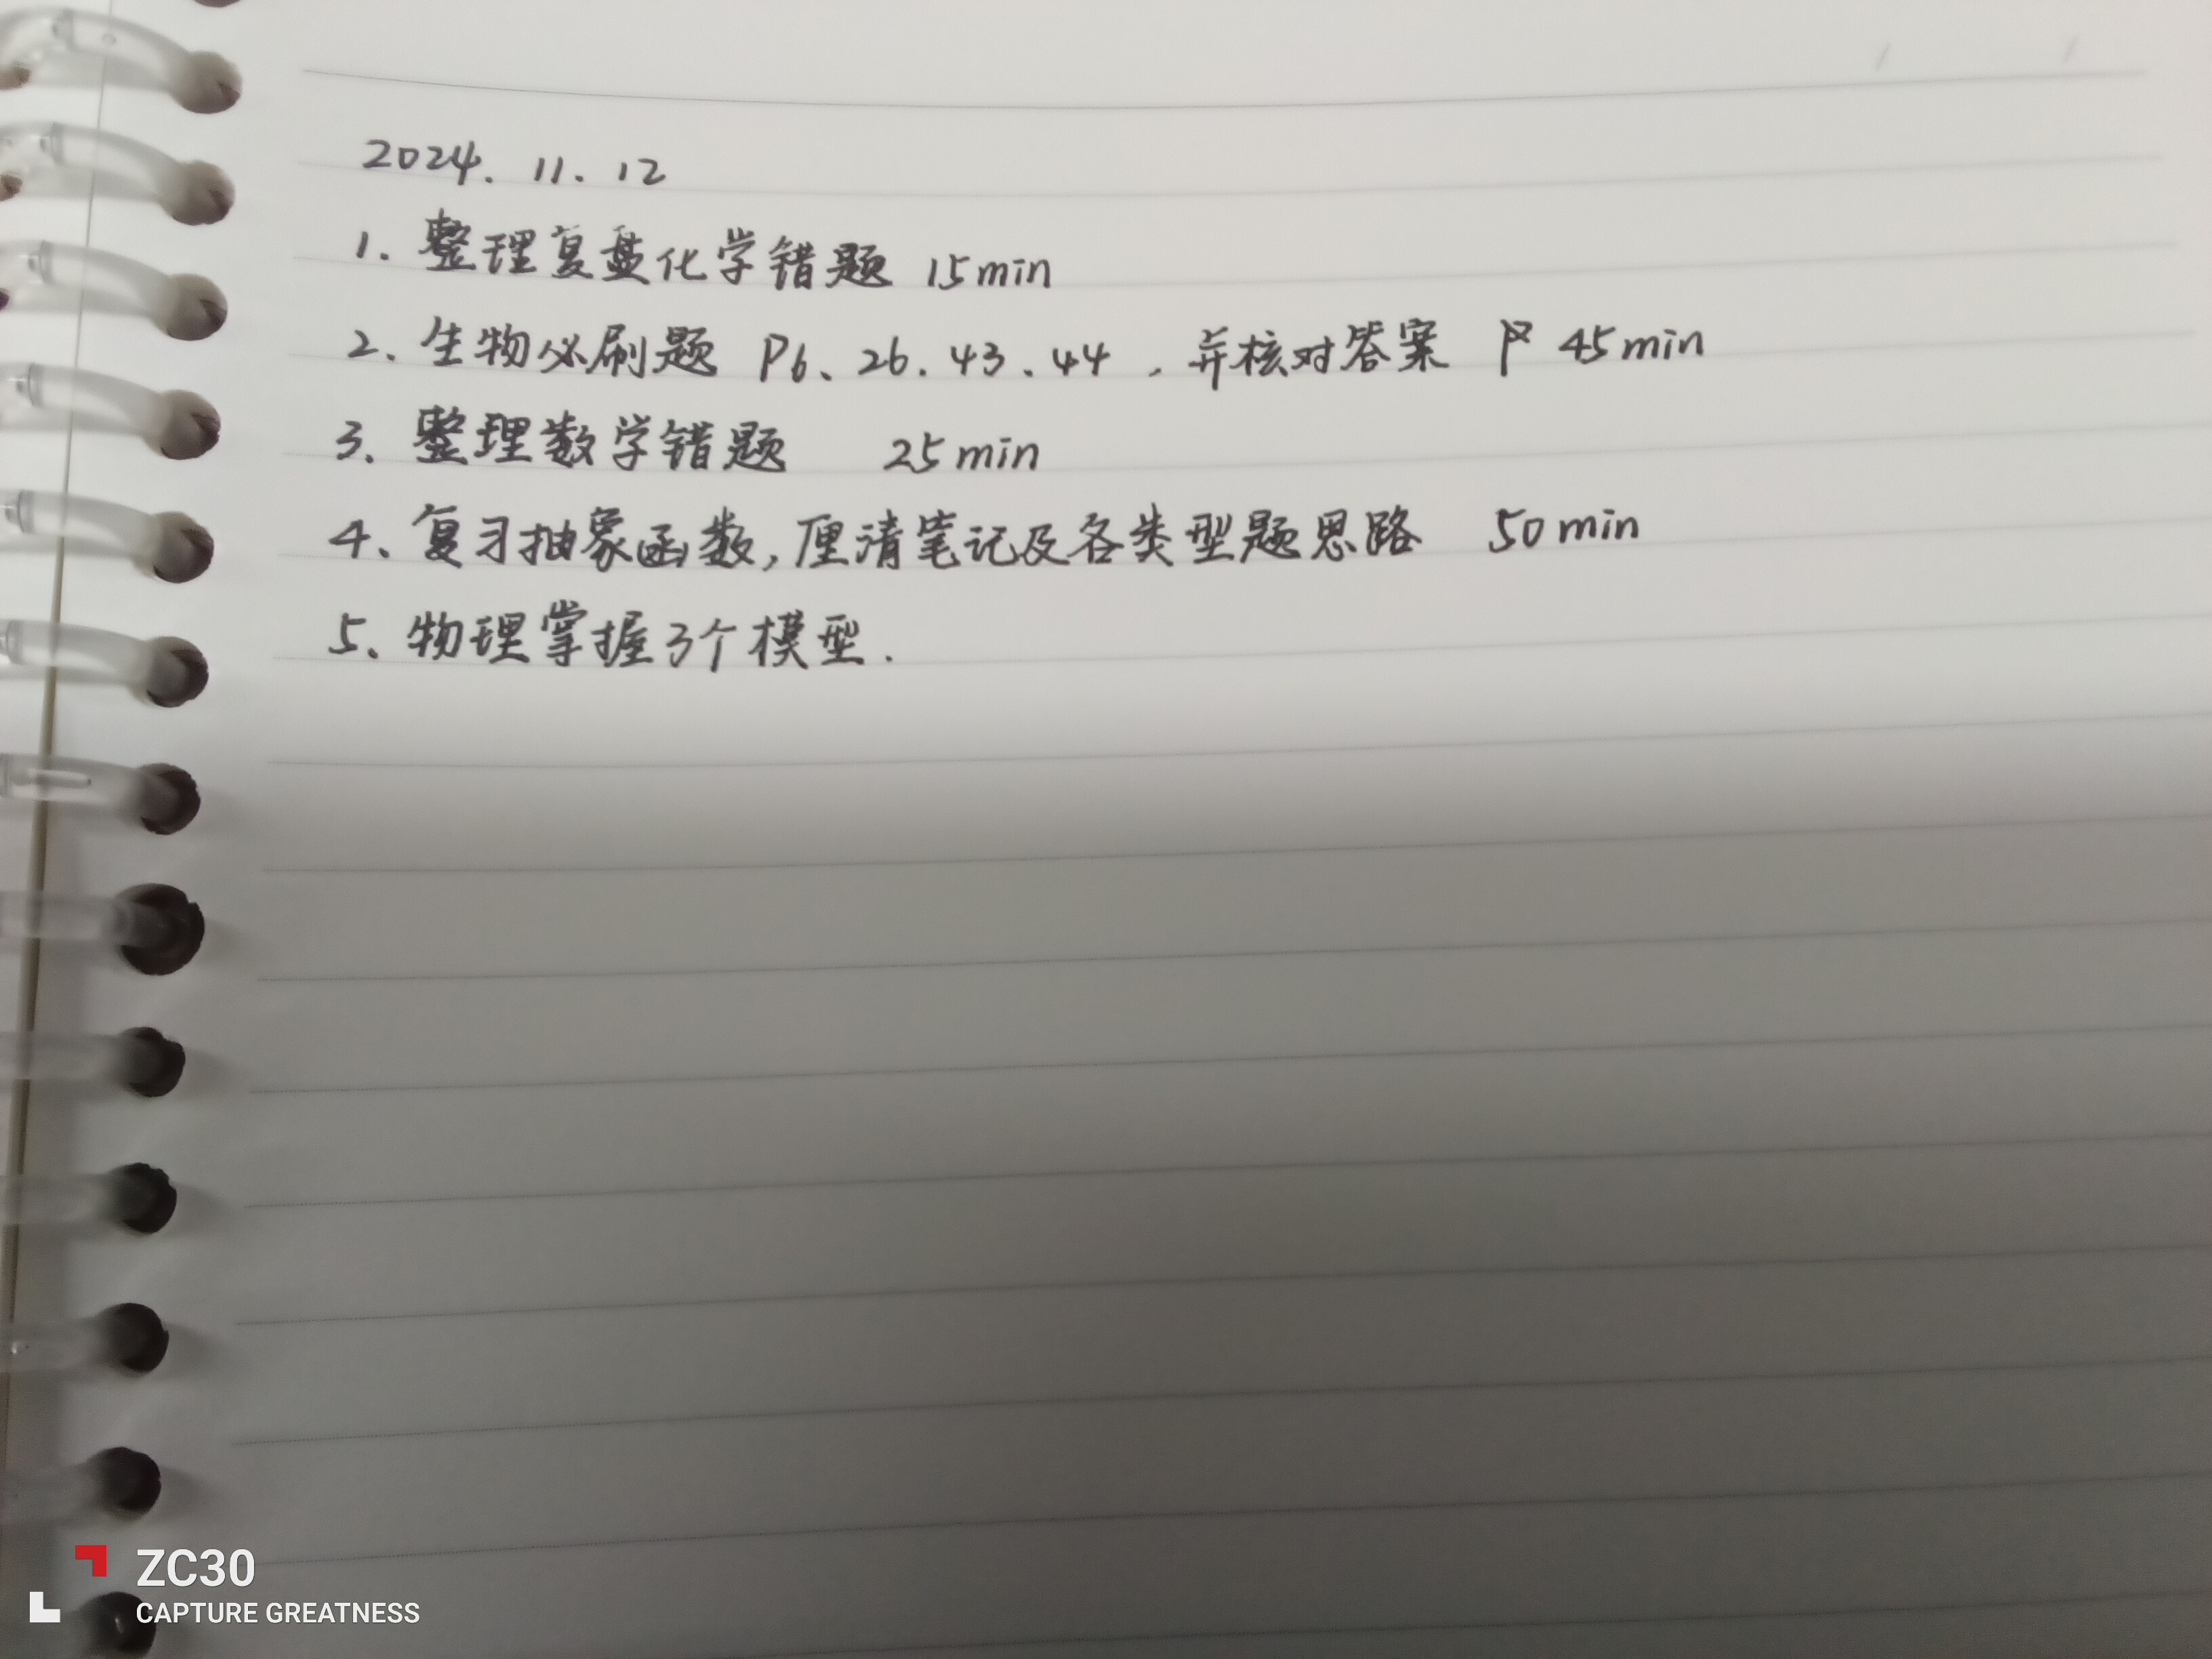 2024. 11. 12
1. 整理复盘化学错题 15min
2. 生物必刷题 P6、26.43.44 , 并核对答案 45min
3、整理数学错题 25min
4、复习抽象函数,厘清笔记及各类型题思路 50min
5、物理掌握3个模型.
ZC30
CAPTURE GREATNESS